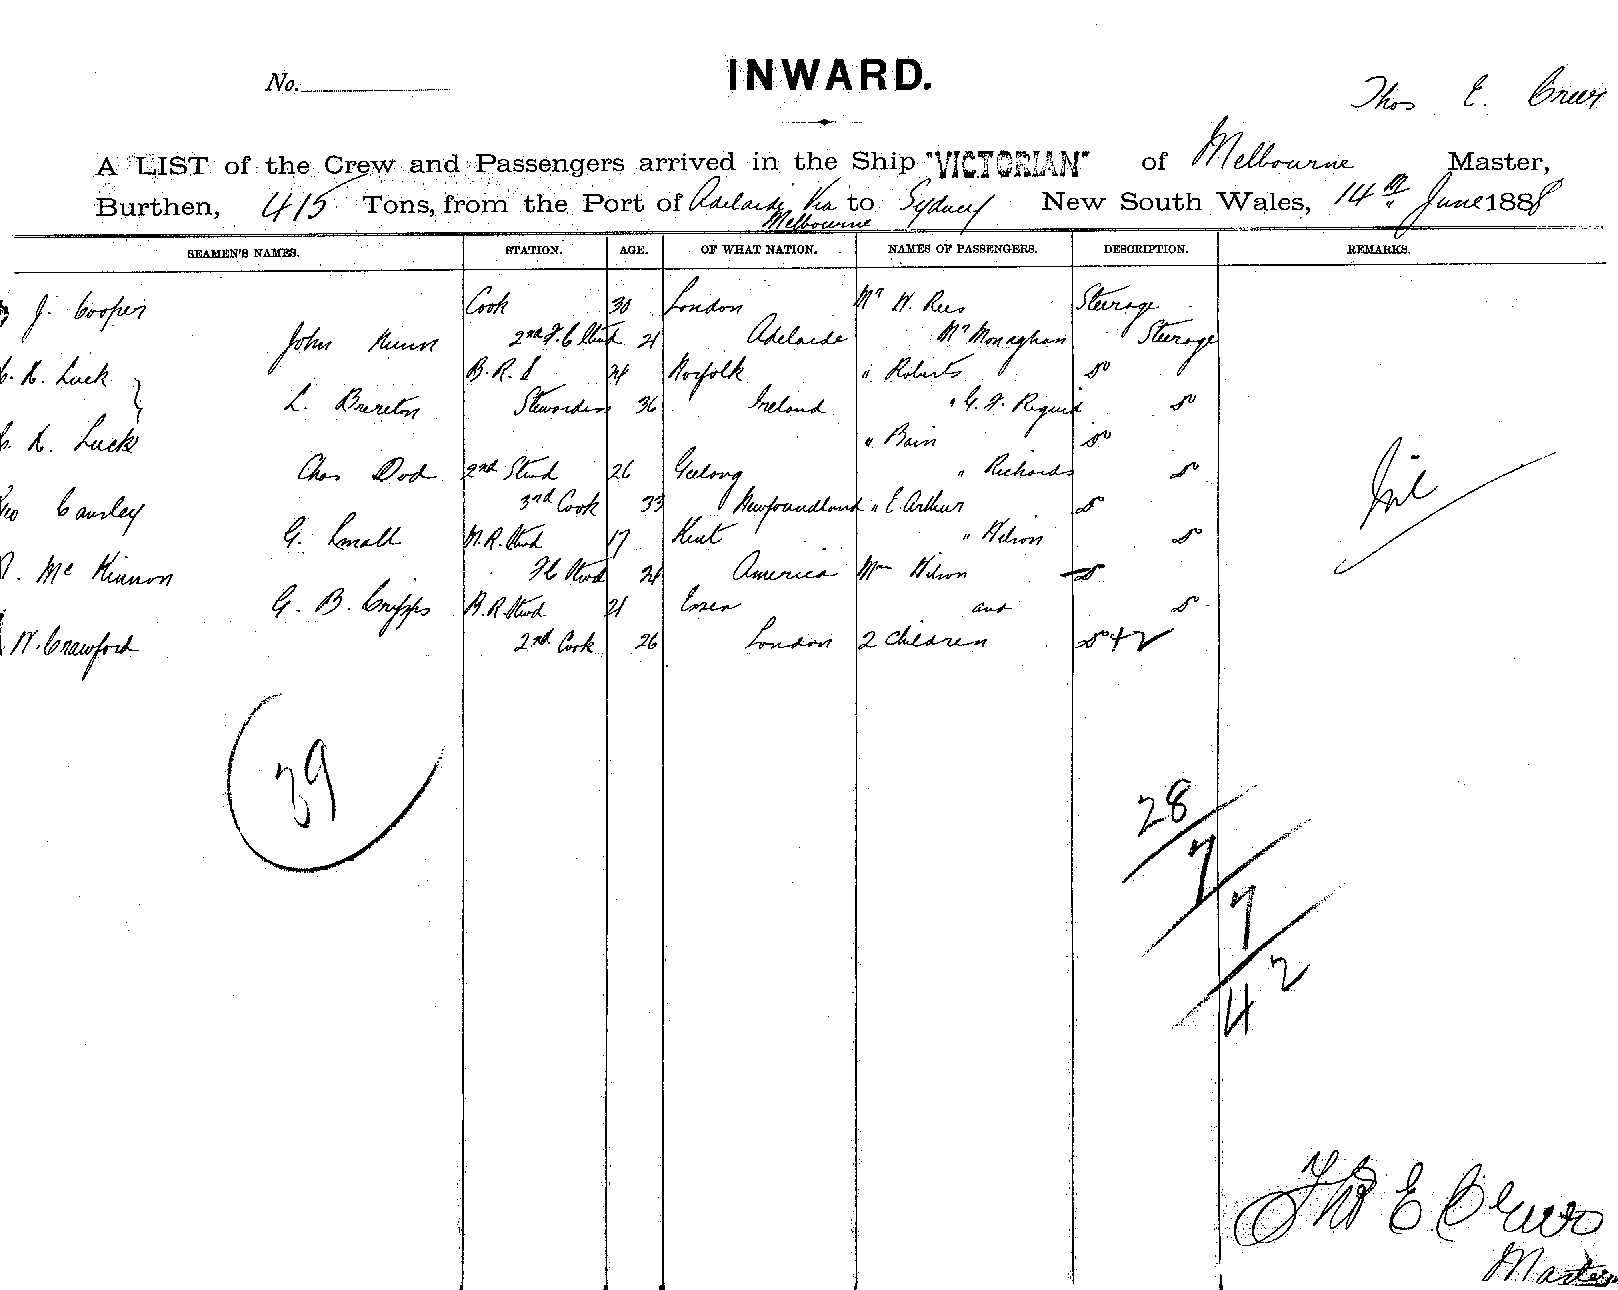 INWARD.
No.
Thos E. Creer
A LIST of the Crew and Passengers arrived in the Ship "VICTORIAN" of Melbourne Master,
Burthen, 415 Tons, from the Port of Adelaide Via Melbourne to Sydney New South Wales, 14th June 1888
SEAMEN'S NAMES. STATION. AGE. OF WHAT NATION. NAMES OF PASSENGERS. DESCRIPTION. REMARKS.
J. Cooper Cook 30 London Mr W. Rees Steerage
John 2nd F.C Stwd 21 Adelaide Mr Monaghan Steerage
Luck B.R.S 24 Norfolk " Roberts Do
L. Brereton Stewardess 36 Ireland " G. F. Do
Luck " Bain Do
Chas Dod 2nd Stwd 26 Geelong " Richards Do
3rd Cook 33 Newfoundland " E. Arthur Do
G. Small M.R. Stwd 17 Kent " Wilson Do
Mc Kinnon F.C Stwd 24 America Mrs Wilson Do
G. B. Cripps B.R. Stwd 21 Essex and Do
W. Crawford 2nd Cook 26 London 2 Children Do + 2
Nil
39
28
7
7
42
Thos E Creer
Master